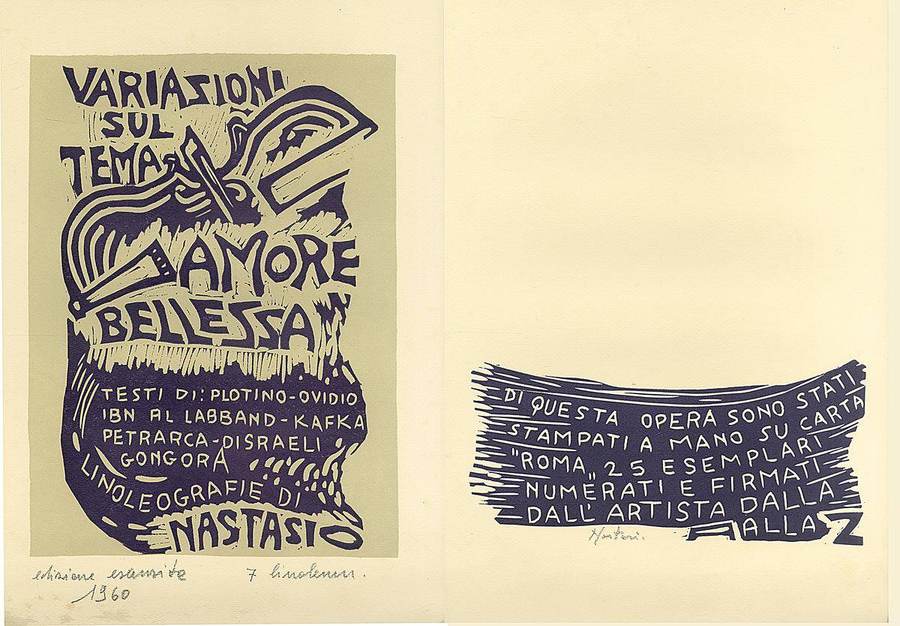 VARIASIONI
SUL
TEMA
AMORE
BELLESSA
TESTI DI: PLOTINO-OVIDIO
IBN AL LABBAND-KAFKA
PETRARCA-DISRAELI
GONGORA
LINOLEOGRAFIE DI
NASTASIO
edizione esaurita 7 linoleum.
1960
DI QUESTA OPERA SONO STATI
STAMPATI A MANO SU CARTA
"ROMA" 25 ESEMPLARI
NUMERATI E FIRMATI
DALL'ARTISTA DALLA
A ALLA Z